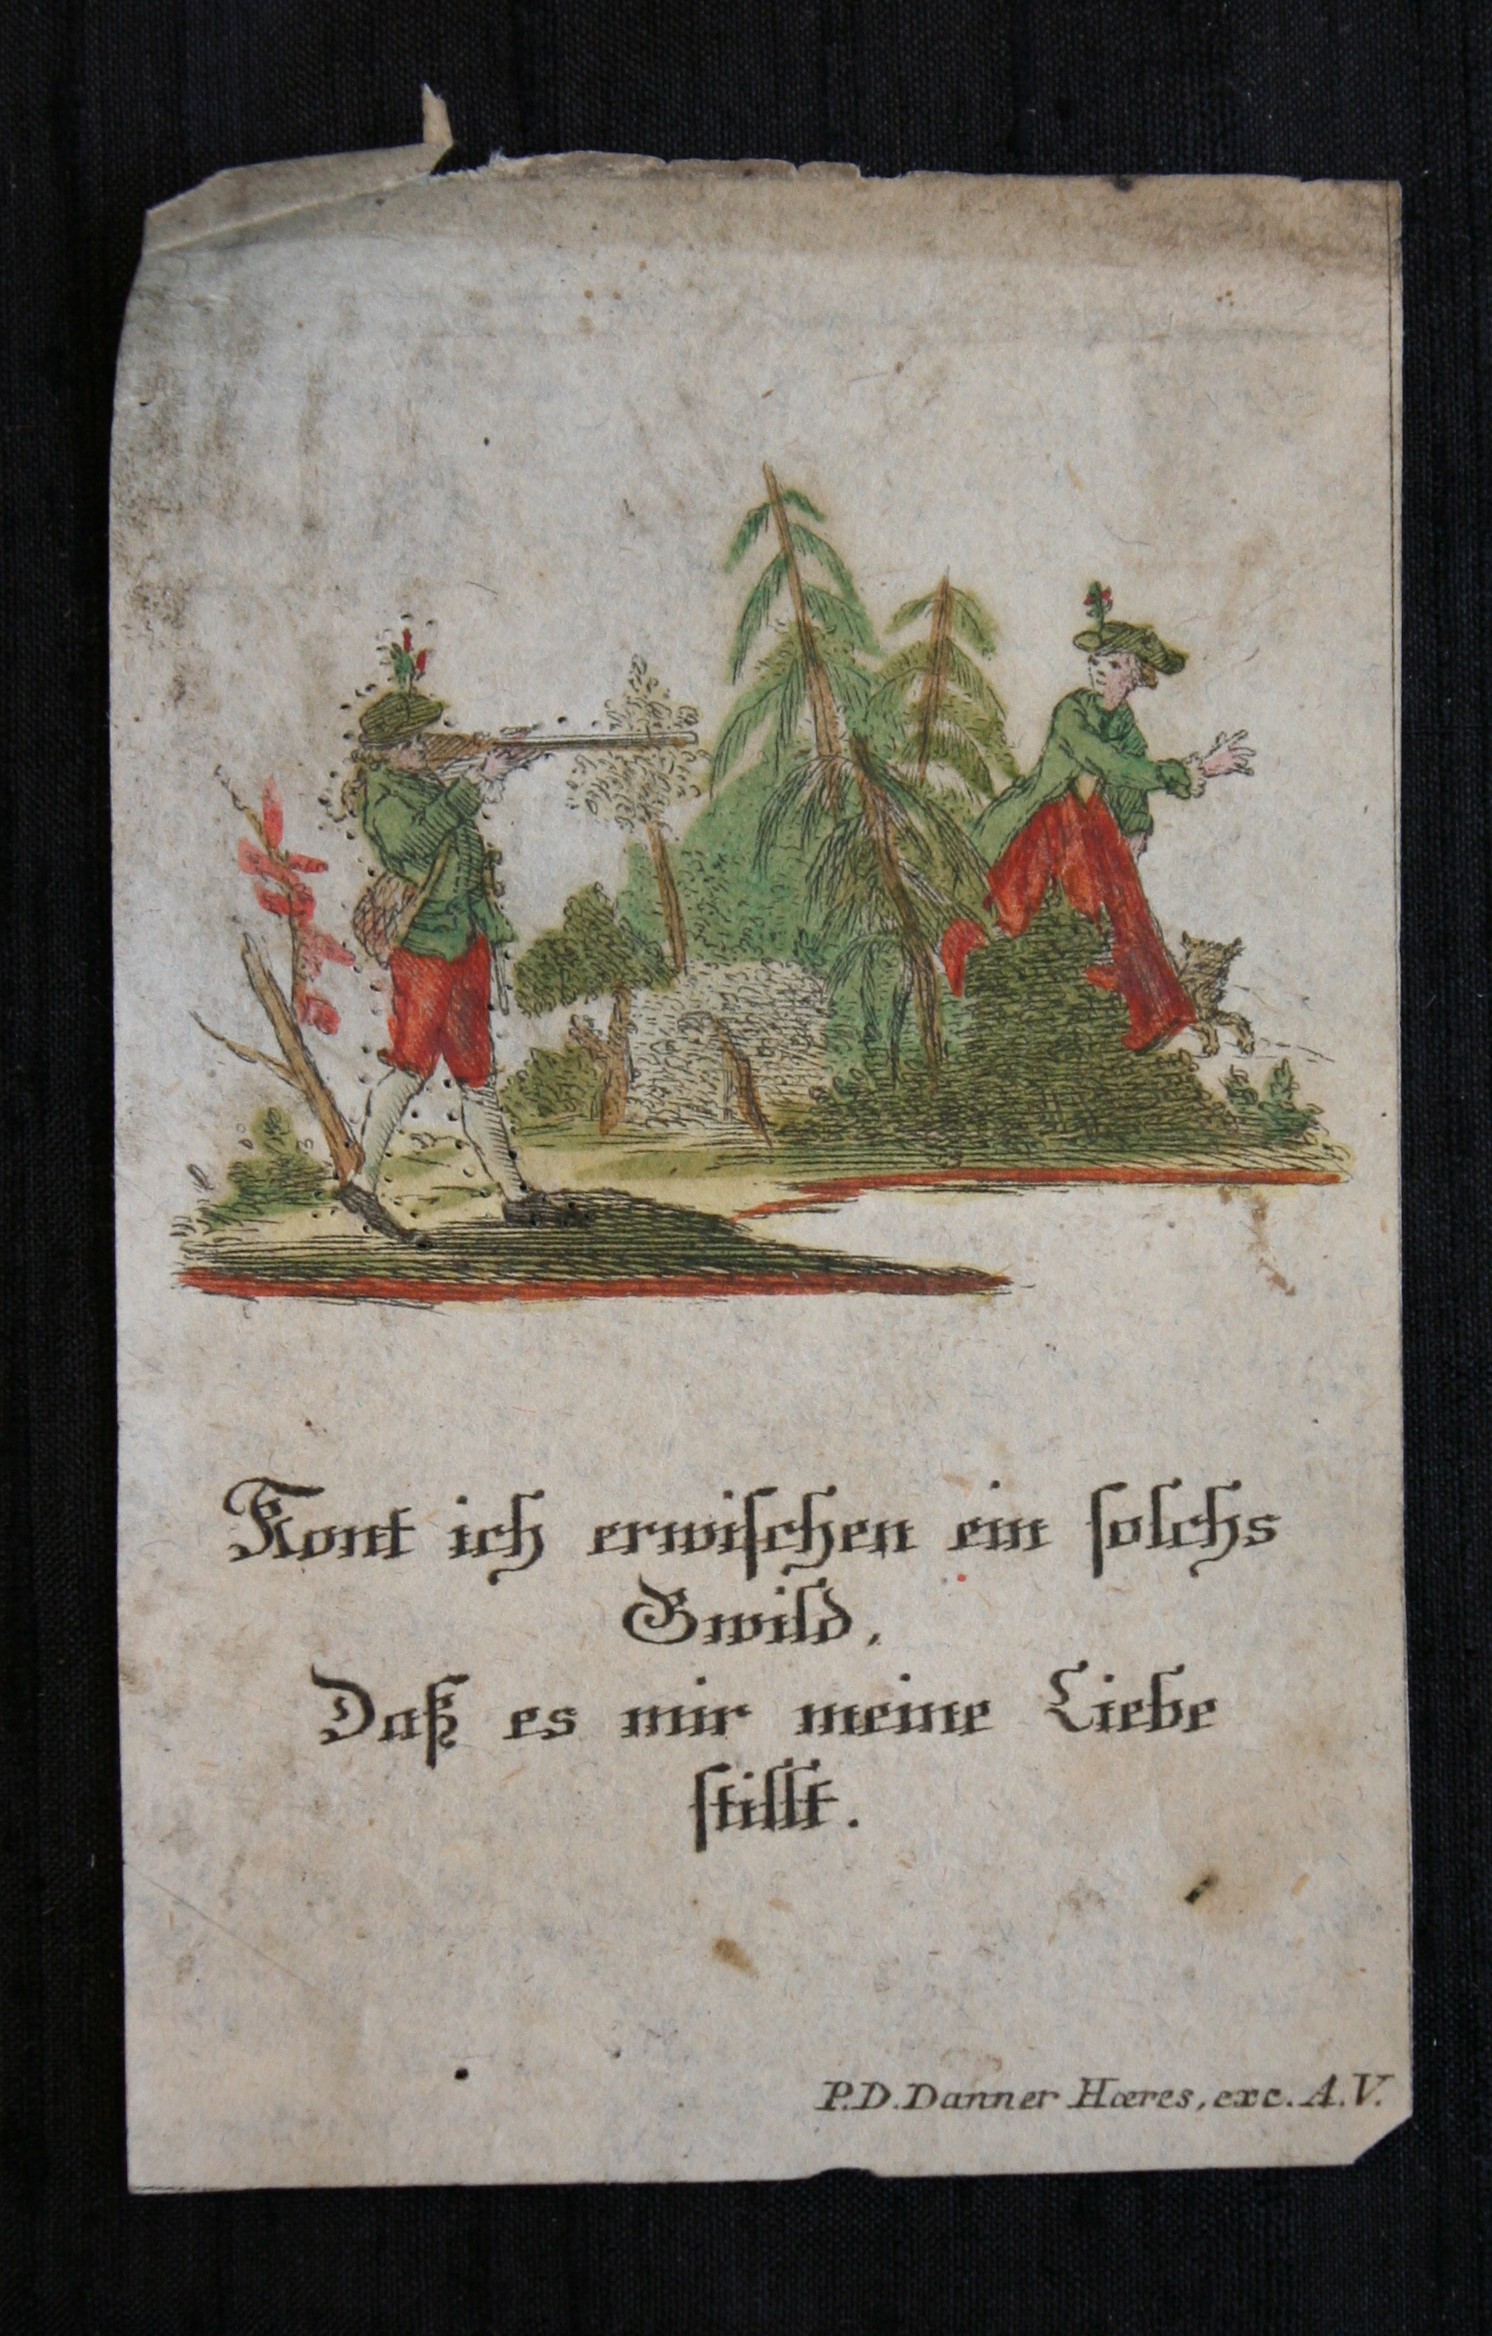 Kont ich erwischen ein solchs
Gwild,
Daß es mir meine Liebe
stillt.
P.D. Danner Hæres, exc. A.V.